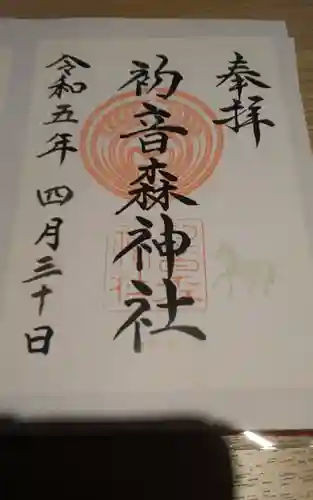 奉拝
初音森神社
令和五年四月三十日